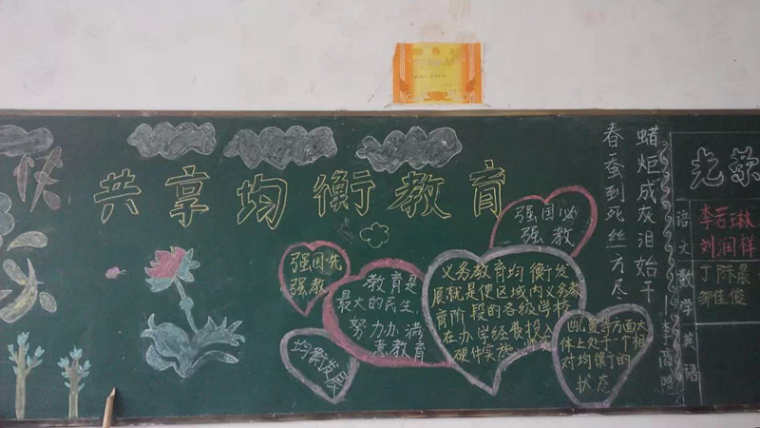 快
乐
共享均衡教育
强国先
强教
教育是
最大的民生，
努力办满
意教育
均衡发展
强国必
强教
义务教育均衡发
展就是使区域内义务教
育阶段的各级学校
在办学经费投入
硬件实施
四个方面大
体上处于相
对均衡的
状态
春蚕到死丝方尽
蜡炬成灰泪始干
李商隐
光荣
语文
数学
英语
李若琳
刘润祥
丁陈晨
佳俊